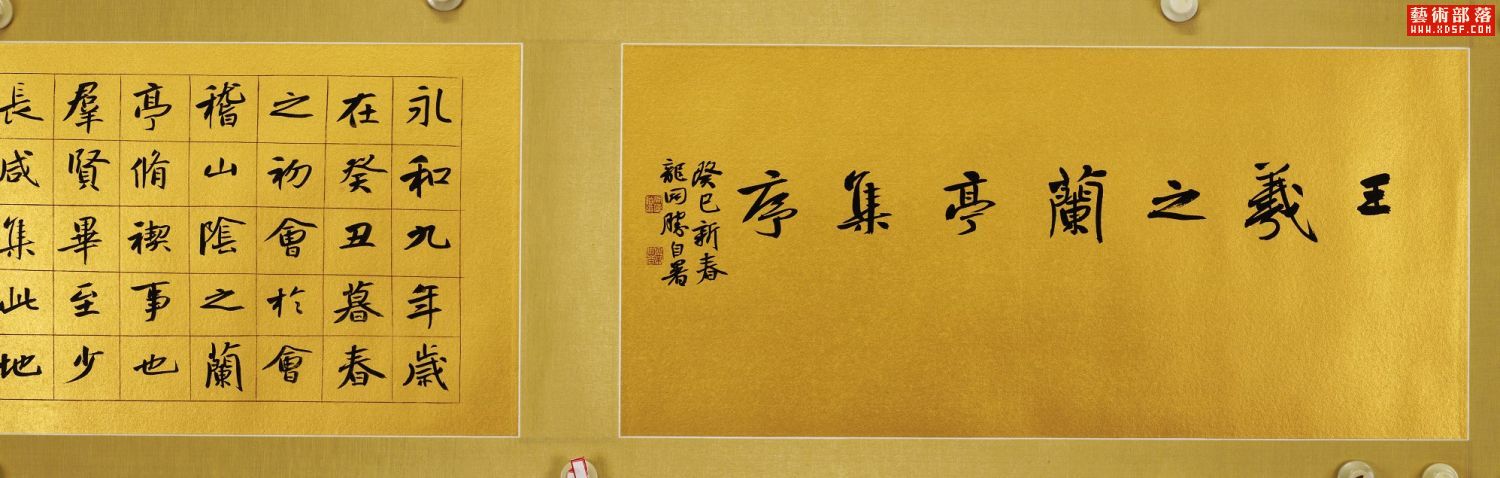 藝術部落
WWW.XDSF.COM
王羲之蘭亭集序
癸巳新春
龍開勝自署
永和九年歲
在癸丑暮春
之初會於會
稽山陰之蘭
亭脩禊事也
羣賢畢至少
長咸集此地